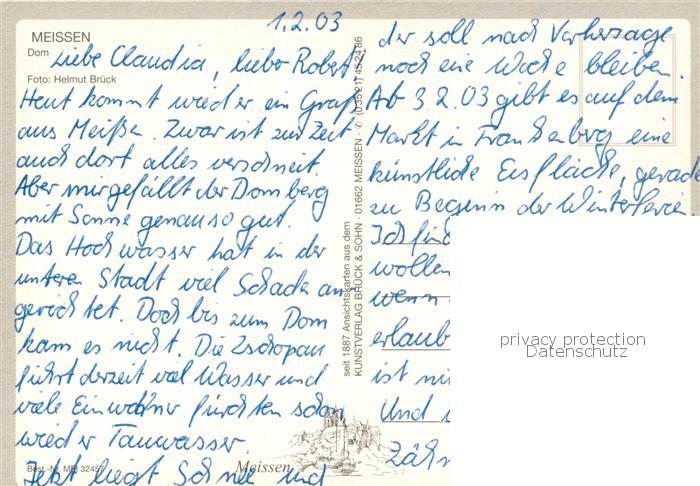 1.2.03
MEISSEN
Dom
Foto: Helmut Brück
Liebe Claudia, lieber Robert!
Heut kommt wieder ein Gruß
aus Meißen. Zwar ist zur Zeit
auch dort alles verschneit.
Aber mir gefällt der Domberg
mit Sonne genauso gut.
Das Hochwasser hat in der
unteren Stadt viel Schaden an-
gerichtet. Doch bis zum Dom
kam es nicht. Die Zschopau
führt derzeit viel Wasser und
viele Einwohner fürchten schon
wieder Tauwasser.
Jetzt liegt Schnee und
der soll nach Vorhersage
noch eine Woche bleiben.
Ab 3.2.03 gibt es auf dem
Markt in Frankenberg eine
künstliche Eisfläche, gerade
zu Beginn der Winterferien
Ich
wollen
wenn
erlaub
ist
Und
Zäh
seit 1887 Ansichtskarten aus dem
KUNSTVERLAG BRÜCK & SOHN · 01662 MEISSEN · ✆ (03521) 45 24 86
Best.-Nr. MEI 32457
Meissen
privacy protection
Datenschutz